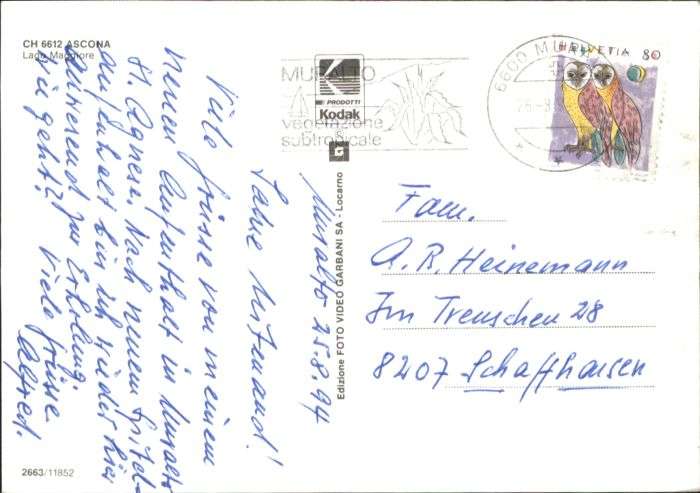 CH 6612 ASCONA
Lago Maggiore
Muralto 25.8.94
Viele Grüsse von meinem
neuen Aufenthalt in Muralto
St. Agnese. Nach meinem Spital-
aufenthalt bin ich wieder hier
zur Erholung.
wie geht's? Viele Grüsse
Alfred.
MURALTO
vegetazione
subtropicale
K
PRODOTTI
Kodak
G
Edizione FOTO VIDEO GARBANI SA - Locarno
6600 MUR
HELVETIA 80
Fam.
A. R. Heinemann
Im Trenschen 28
8207 Schaffhausen
2663/11852